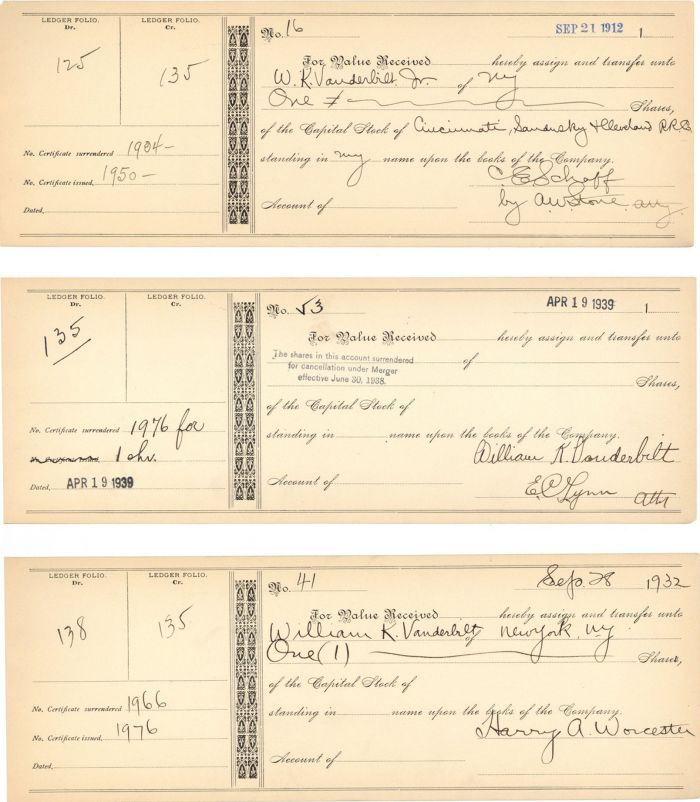 LEDGER FOLIO.
Dr. Cr.
125 135
No. Certificate surrendered 1904-
No. Certificate issued, 1950-
Dated,
No. 16 SEP 21 1912 1
For Value Received hereby assign and transfer unto
W. K. Vanderbilt Jr. of NY
One Shares,
of the Capital Stock of Cincinnati, Sandusky & Cleveland R.R.Co
standing in my name upon the books of the Company.
C. E. Schaff
Account of by A.W. Stone atty.
LEDGER FOLIO.
Dr. Cr.
135
No. Certificate surrendered 1976 for
1 shr.
Dated, APR 19 1939
No. 53 APR 19 1939 1
For Value Received hereby assign and transfer unto
The shares in this account surrendered
for cancellation under Merger
effective June 30, 1938.
of
Shares,
of the Capital Stock of
standing in name upon the books of the Company.
William K. Vanderbilt
Account of E.C. Lynn Atty
LEDGER FOLIO.
Dr. Cr.
138 135
No. Certificate surrendered 1966
No. Certificate issued, 1976
Dated,
No. 41 Sep. 28 1932
For Value Received hereby assign and transfer unto
William K. Vanderbilt of New York, NY
One (1) Shares,
of the Capital Stock of
standing in name upon the books of the Company.
Harry A. Worcester
Account of